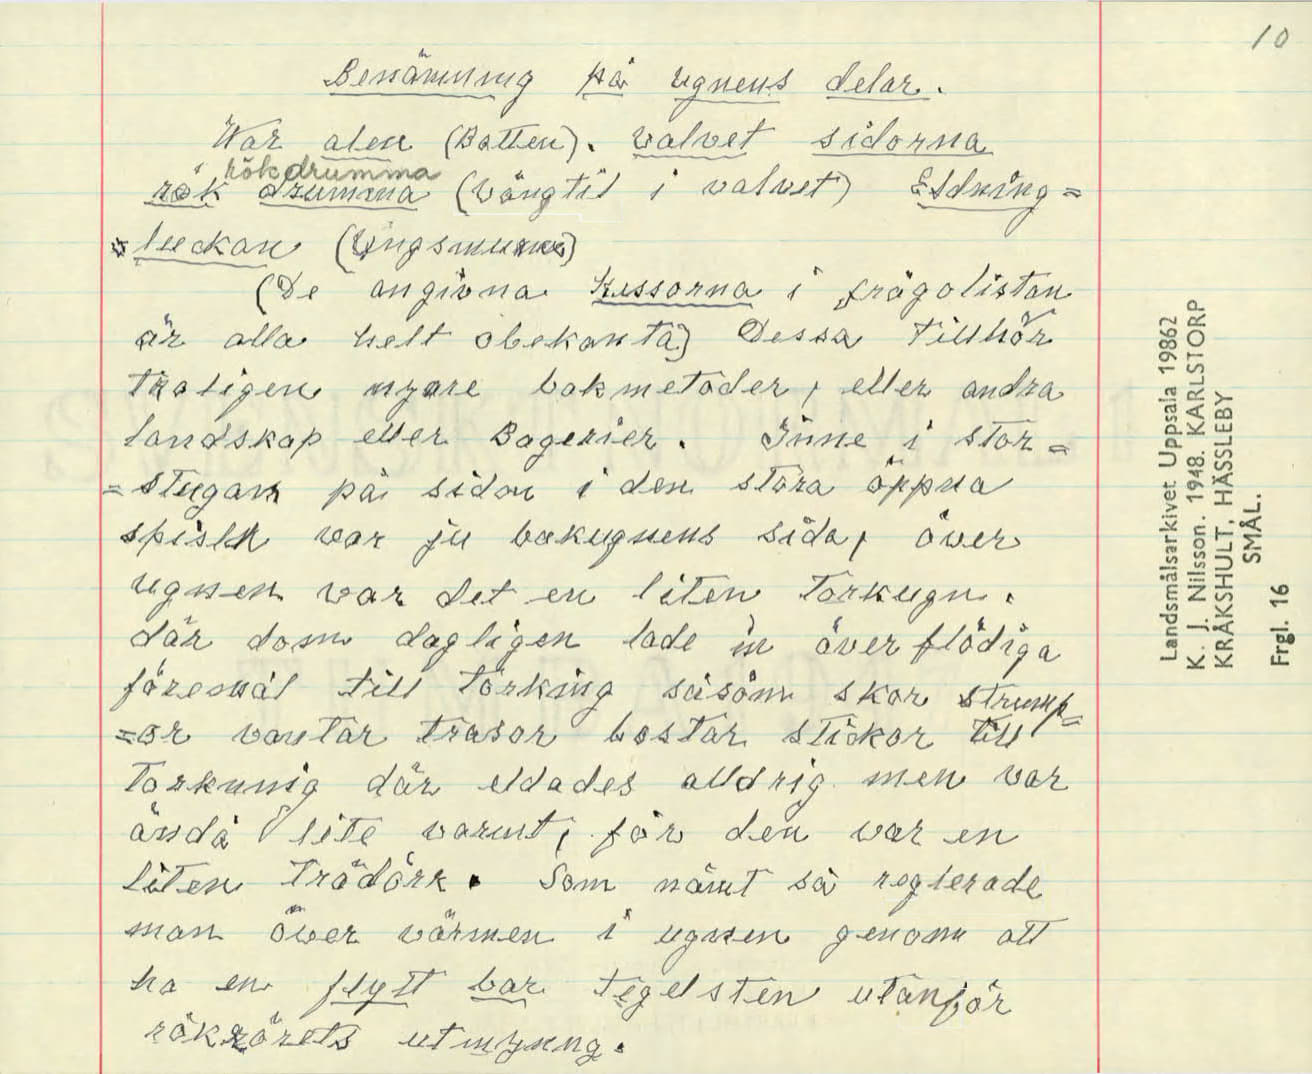 10
Benämning på ugnens delar.
War alen (Botten). valvet sidorna
rökdrumma
rök drumma (vängtil i valvet) Eldning=
=luckan (Ungsmunn)
(De angivna Kussorna i frågolistan
är alla helt obekanta) Dessa tillhör
troligen nyare bakmetoder, eller andra
landskap eller Bagerier. Inne i stor=
=stugan på sidan i den stora öppna
spisen var ju bakugnens sida, över
ugnen var det en liten Torkugn.
där dom dagligen lade in överflödiga
föremål till torking såsom skor strump=
=or vantar trasor bostar stickor till
Torkunnig där eldades alldrig men var
ändå lite varmt, för den var en
liten Trädörr. Som nämt så reglerade
man över värmen i ugnen genom att
ha en flytt bar tegelsten utanför
rökrörets utmynng.
Landsmålsarkivet Uppsala 19862
K. J. Nilsson. 1948. KARLSTORP
KRÅKSHULT, HÄSSLEBY
SMÅL.
Frgl. 16